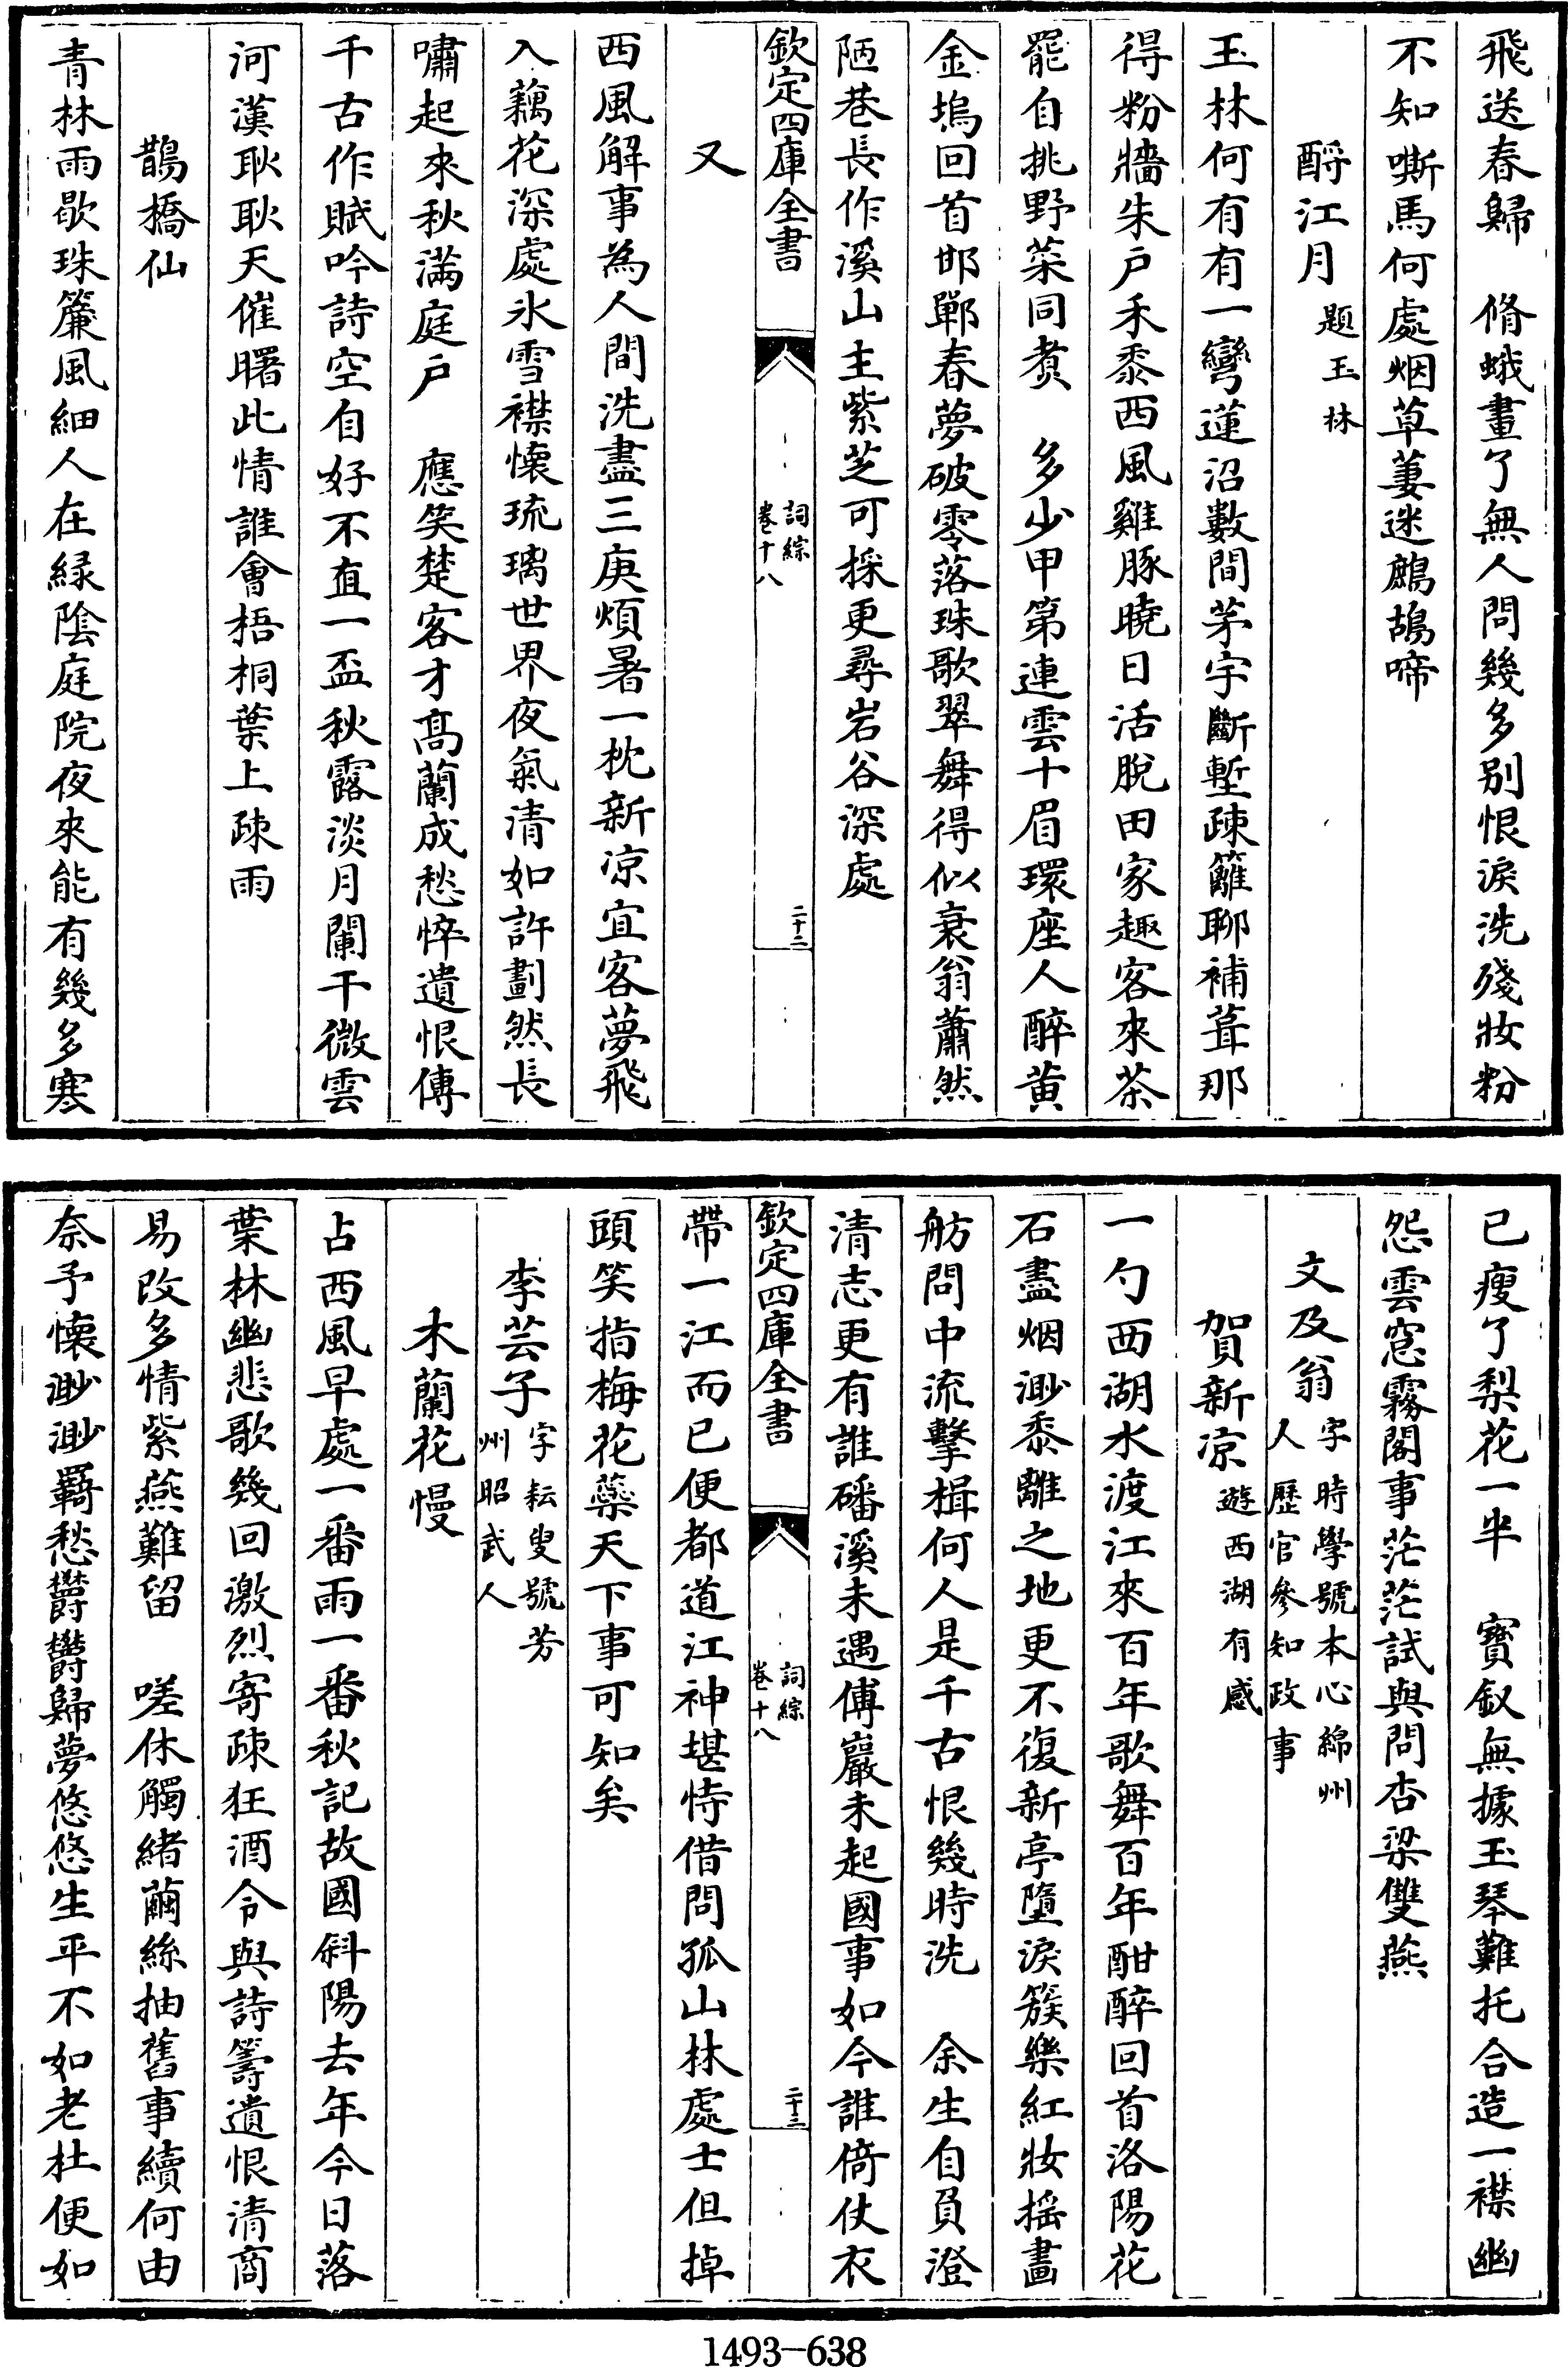 飛送春歸　脩蛾畫了無人問幾多别恨淚洗殘妝粉
不知嘶馬何處烟草萋迷鷓鴣啼
酹江月題玉林
玉林何有有一彎蓮沼數間茅宇斷塹疎籬聊補葺那
得粉牆朱戸禾黍西風雞豚曉日活脫田家趣客來茶
罷自挑野菜同煑　多少甲第連雲十眉環座人醉黄
金塢回首邯鄲春夢破零落珠歌翠舞得似衰翁蕭然
陋巷長作溪山主紫芝可採更尋岩谷深處
欽定四庫全書
詞綜
卷十八
二十二
又
西風解事為人間洗盡三庚煩暑一枕新凉宜客夢飛
入藕花深處氷雪襟懷琉璃世界夜氣清如許劃然長
嘯起來秋滿庭戸　應笑楚客才髙蘭成愁悴遺恨傳
千古作賦吟詩空自好不直一盃秋露淡月闌干微雲
河漢耿耿天催曙此情誰會梧桐葉上疎雨
鵲橋仙
青林雨歇珠簾風細人在緑陰庭院夜來能有幾多寒
已瘦了梨花一半　寳釵無據玉琴難托合造一襟幽
怨雲窓霧閣事茫茫試與問杏梁雙燕
文及翁字時學號本心綿州
人歴官參知政事
賀新凉遊西湖有感
一勺西湖水渡江來百年歌舞百年酣醉回首洛陽花
石盡烟渺黍離之地更不復新亭墮淚簇樂紅妝摇畫
舫問中流擊楫何人是千古恨幾時洗　余生自負澄
清志更有誰磻溪未遇傅巖未起國事如今誰倚仗衣
欽定四庫全書
詞綜
卷十八
二十三
帶一江而已便都道江神堪恃借問孤山林處士但掉
頭笑指梅花蘂天下事可知矣
李芸子字耘叟號芳
州昭武人
木蘭花慢
占西風早處一番雨一番秋記故國斜陽去年今日落
葉林幽悲歌幾回激烈寄疎狂酒令與詩籌遺恨清商
易改多情紫燕難留　嗟休觸緒繭絲抽舊事續何由
奈予懷渺渺羇愁欝欝歸夢悠悠生平不如老杜便如
1493-638